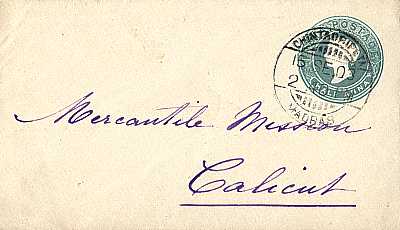 POSTAGE
HALF ANNA
CHINTADRIPET
15
2
MADRAS
Mercantile Mission
Calicut